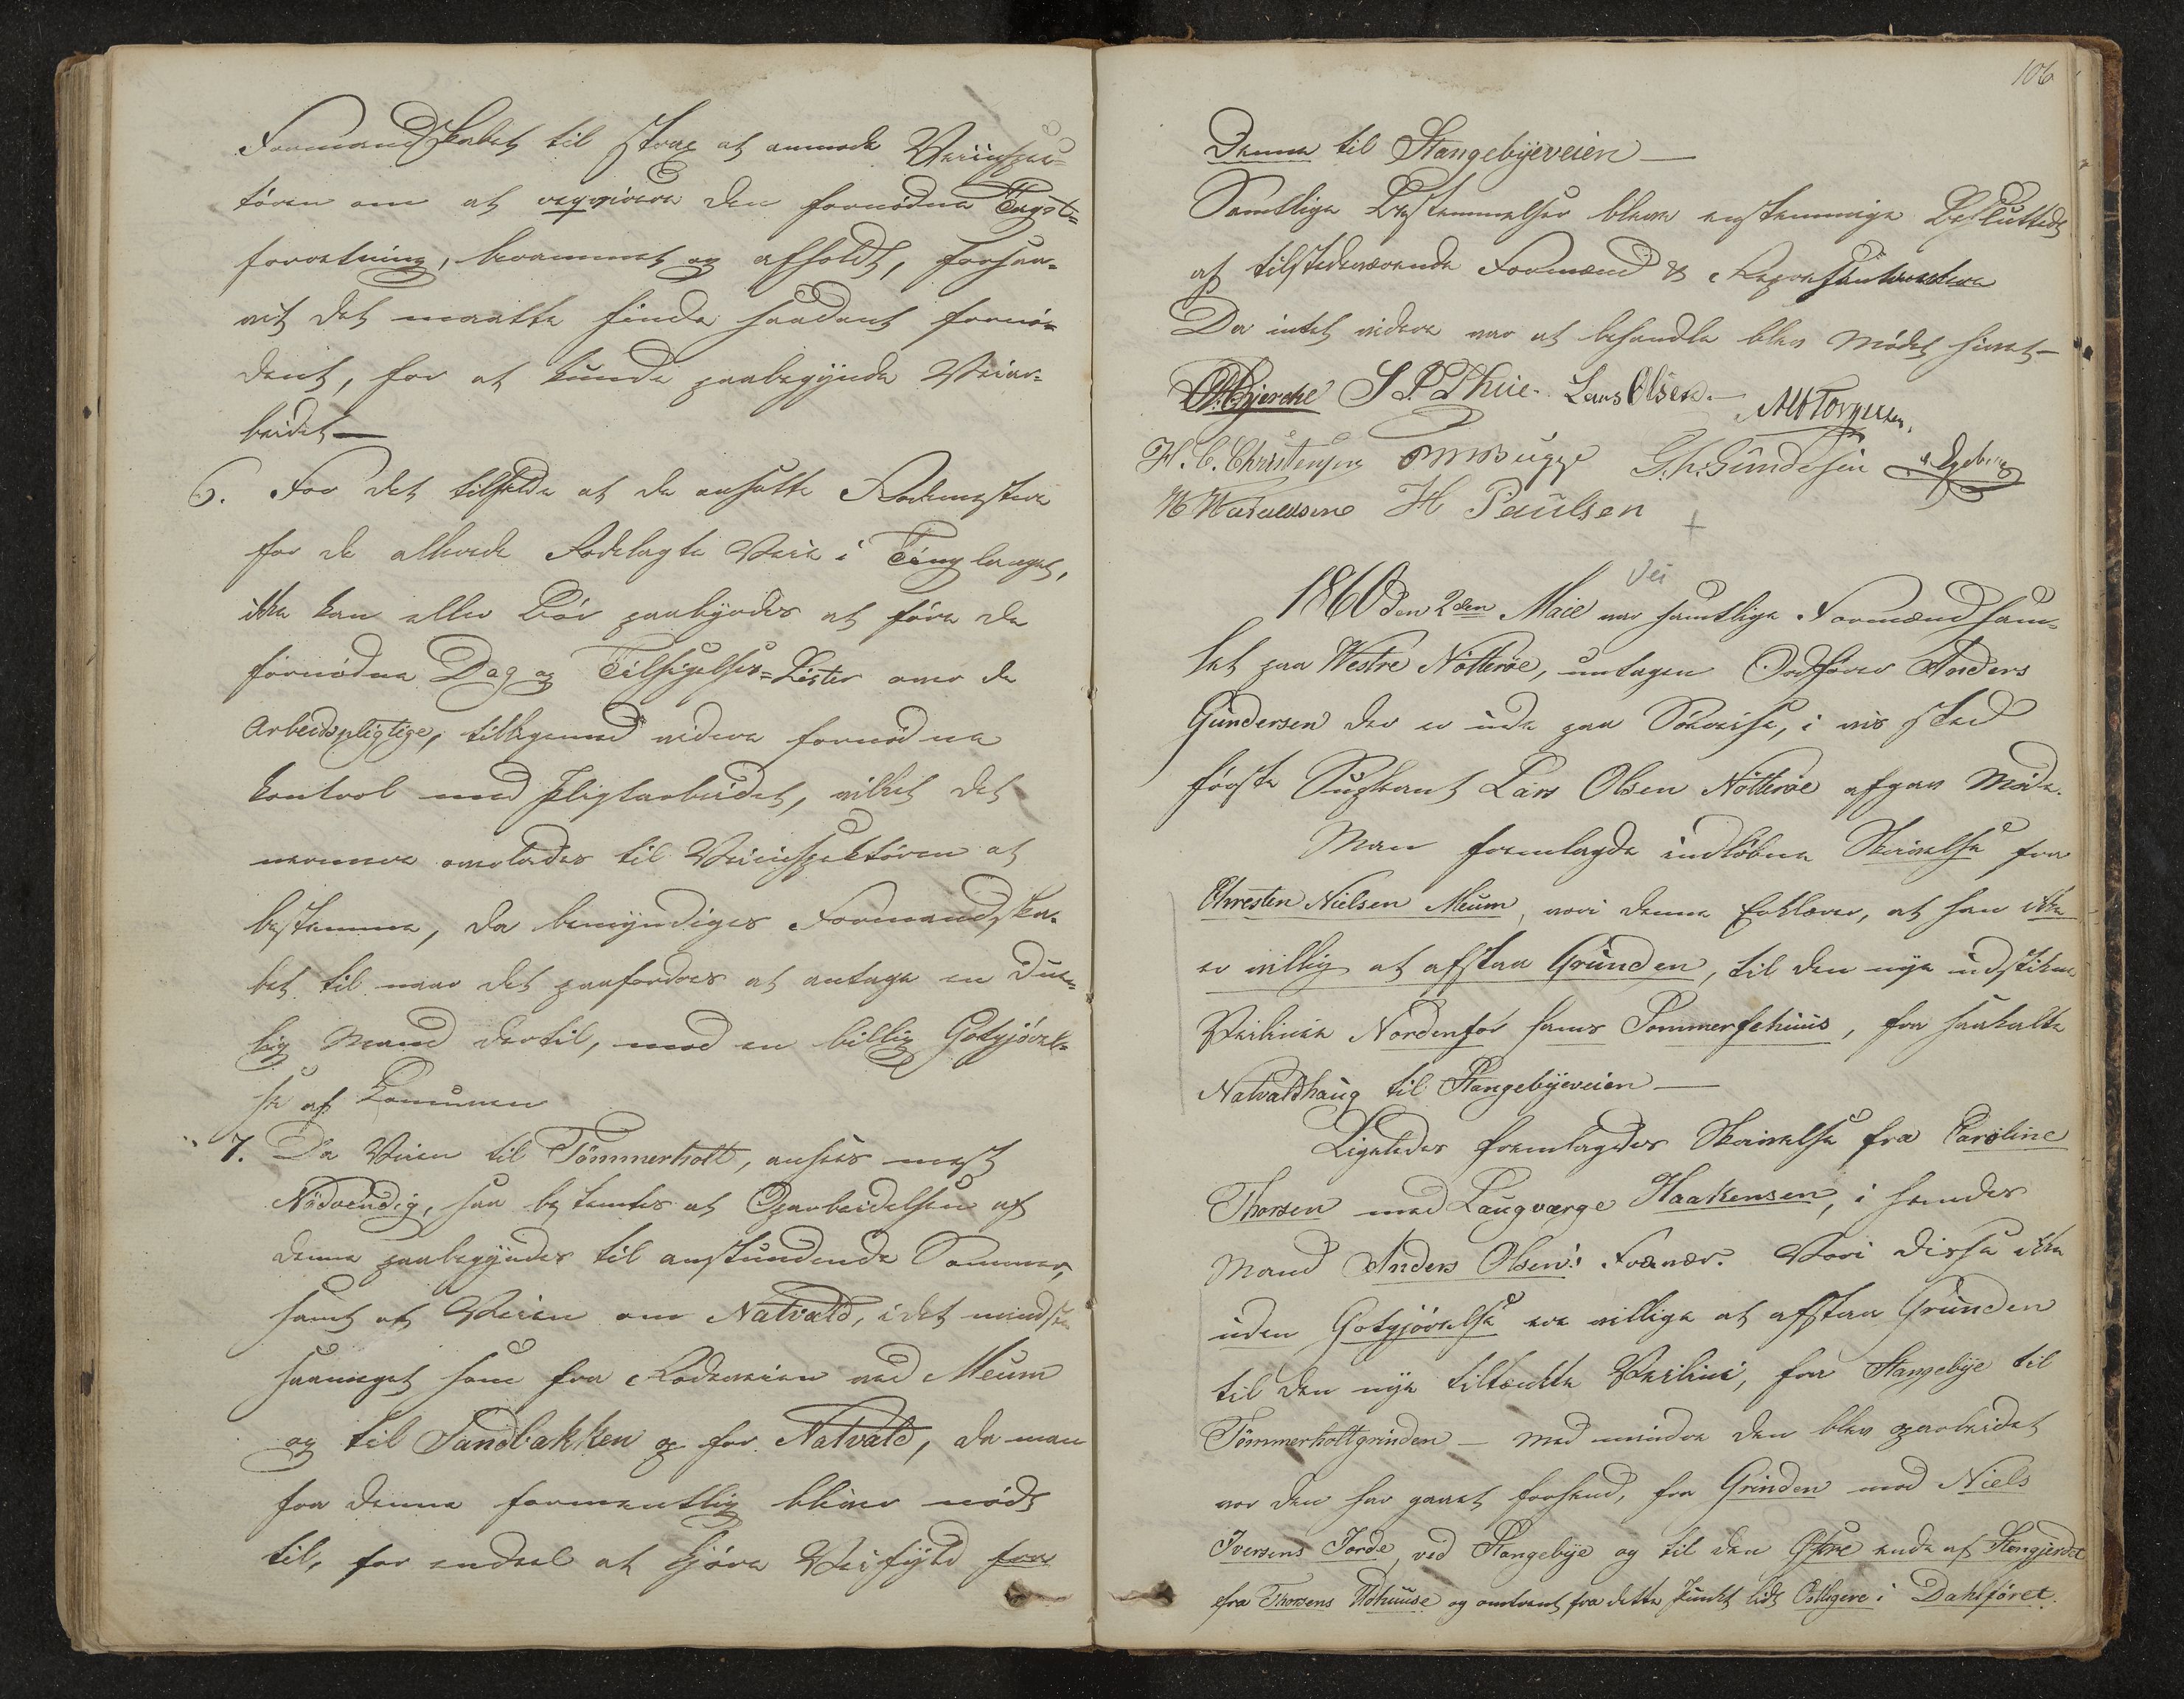 Formandskabet til strax at anmode Veiinspec-
tören om at reqvirere den fornødne Taxt-
forretning, berammet og afholdt, forsaa-
vit det maatte finde saadant fornö-
dent, for at kunde paabegynde Veiar-
beidet —
6. For det tilfelde at de ansatte Rodemestere
for de allerede Rodelagte Veie i Tinglauget,
ikke kan eller Bör paabyrdes at före de
fornødne Dag og Tilsigelses-Lister over de
Arbeidspligtige, tilligemed videre fornødne
Kontrol med Pligtarbeidet, vilket det
nermere overlades til Veiinspektören at
bestemme, da bemyndiges Formandska-
bet til naar det paafordres at antage en Due-
lig Mand dertil, mod en billig Gotgjörel-
se af Komunen
7. Da Veien til Tömmerholt, ansees mest
Nödvendig, saa bestemtes at Oparbeidelsen af
denne paabegyndes til anstundende Sommer,
samt at Veien om Natvald, i det mindste
saameget som fra Rodeveien ved Meum
og til Sandbakken og for Natvald, da man
fra denne formentlig bliver nödt
til, for endeel at Gjöre Veifyld fra
106
Denne til Stangebyeveien —
Samtlige Bestemmelser bleve enstemmige Besluttede
af tilstedeværende Formænd & Repræsentantere
Da intet videre var at behandle blev Mödet hævet —
Bjerche S P Thue. Lars Olsen. — Torgersen,
H. C. Christensen Bugge G. h. Gundesen Egeberg
H Paulsen
Vei
1860 den 2den Maie var samtlige Formænd sam-
let paa Westre Nötteröe, untagen Ordförer Anders
Gundersen der er ude paa Söreise, i vis sted
förste Supleant Lars Olsen Nötteröe afgav Möde.
Man fremlagde indløbne Skrivelse fra
Chresten Nielsen Meum, vori denne Erklærer, at han ikke
er villig at afstaa Grunden, til den nye udstikne
Veilinie Nordenfor hans Sommerfehuus, fra saakalte
Natvaldhaug til Stangebyeveien —
Ligeledes fremlagdes Skrivelse fra Caroline
Thorsen med Laugværge Haakensen, i hendes
Mand Anders Olsens Fravær. Vori disse ikke
uden Gotgjörelse ere villige at afstaa Grunden
til den nye tiltænkte Veilinie, fra Stangebye til
Tömmerholtgrinden — med mindre den blev oparbeidet
vor den har gaaet forhend, fra Grinden mod Niels
Iversens Jorde, ved Stangebye og til den Östre ende af Stengjerdet
fra Thorsens Udhuuse og omtrent fra dette Punkt lidt Östligere i Dahlföret.